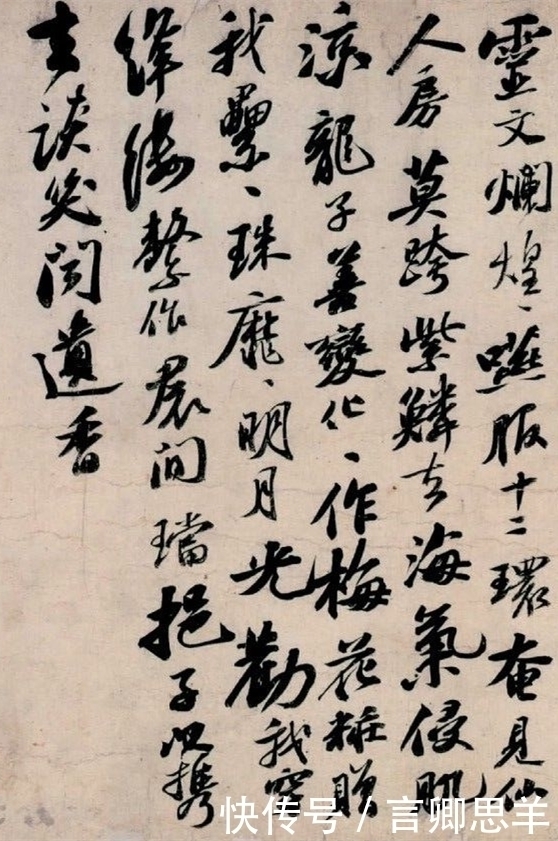 靈文爛煌〻嚥服十二環奄見仙
人房莫跨紫鱗去海氣侵肌
涼龍子善變化〻作梅花粧贈
我纍〻珠靡〻明月光勸我穿
絳縷繫作裠間璫挹子以携
去談笑聞遺香
快传号/言卿思羊